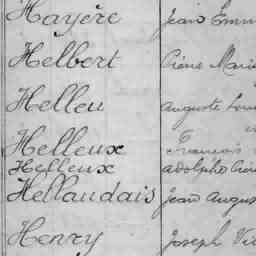 Hayère Jean Emm
Helbert Pierre Marie
Helleu Auguste Loui
Helleux François
Helleux adolphe Pierr
Hellaudais Jean Augus
Henry Joseph Vic